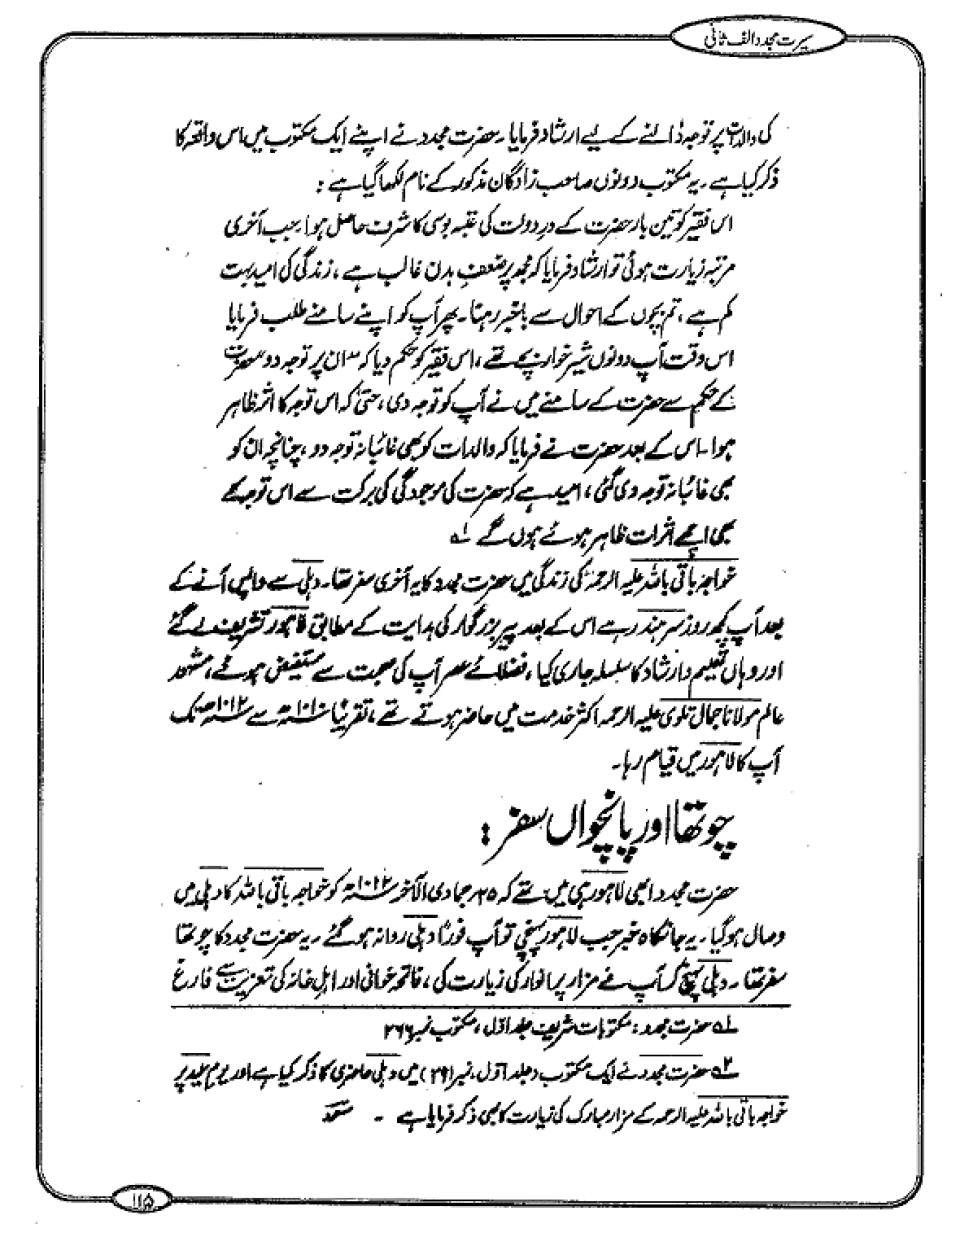 سیرت مجدد الف ثانی
کی والدات پر توجہ ڈالنے کے لیے ارشاد فرمایا۔ حضرت مجدد نے اپنے ایک مکتوب میں اس واقعہ کا
ذکر کیا ہے۔ یہ مکتوب دونوں صاحب زادگان مذکور کے نام لکھا گیا ہے :
اس فقیر کو تین بار حضرت کے در دولت کی عتبہ بوسی کا شرف حاصل ہوا۔ جب آخری
مرتبہ زیارت ہوئی تو ارشاد فرمایا کہ مجھ پر ضعفِ بدن غالب ہے ، زندگی کی امید بہت
کم ہے ، تم بچوں کے احوال سے باخبر رہنا۔ پھر آپ کو اپنے سامنے طلب فرمایا
اس وقت آپ دونوں شیر خوار بچے تھے ، اس فقیر کو حکم دیا کہ " ان پر توجہ دو " حضرت
کے حکم سے حضرت کے سامنے میں نے آپ کو توجہ دی ، حتیٰ کہ اس توجہ کا اثر ظاہر
ہوا۔ اس کے بعد حضرت نے فرمایا کہ والدات کو بھی غائبانہ توجہ دو ، چنانچہ ان کو
بھی غائبانہ توجہ دی گئی ، امید ہے کہ حضرت کی موجودگی کی برکت سے اس توجہ کے
بھی اچھے اثرات ظاہر ہوئے ہوں گے ۱؎
خواجہ باقی باللہ علیہ الرحمہ کی زندگی میں حضرت مجدد کا یہ آخری سفر تھا۔ دہلی سے واپس آنے کے
بعد آپ کچھ روز سر ہند رہے اس کے بعد پیر بزرگوار کی ہدایت کے مطابق لاہور تشریف لے گئے
اور وہاں تعلیم و ارشاد کا سلسلہ جاری کیا ، فضلائے عصر آپ کی صحبت سے مستفیض ہوئے ، مشہور
عالم مولانا جمال تلوی علیہ الرحمہ اکثر خدمت میں حاضر ہوتے تھے ، تقریباً ۱۰۱۰ھ سے ۱۰۱۲ھ تک
آپ کا لاہور میں قیام رہا۔
چوتھا اور پانچواں سفر :
حضرت مجدد ابھی لاہور ہی میں تھے کہ ۲۵ جمادی الآخر ۱۰۱۲ھ کو خواجہ باقی باللہ کا دہلی میں
وصال ہو گیا۔ یہ جانکاہ خبر جب لاہور پہنچی تو آپ فوراً دہلی روانہ ہو گئے۔ یہ حضرت مجدد کا چوتھا
سفر تھا۔ دہلی پہنچ کر آپ نے مزار پر انوار کی زیارت کی ، فاتحہ خوانی اور اہلِ خانہ کی تعزیت سے فارغ
۱؎ حضرت مجدد : مکتوبات شریف جلد اوّل ، مکتوب نمبر ۲۶۶
۲؎ حضرت مجدد نے ایک مکتوب (جلد اوّل ، نمبر ۲۹۱) میں دہلی حاضری کا ذکر کیا ہے اور یومِ عید پر
خواجہ باقی باللہ علیہ الرحمہ کے مزار مبارک کی زیارت کا بھی ذکر فرمایا ہے ۔
۱۱۵